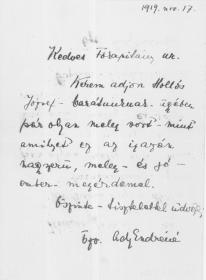 1919. nov. 17.
Kedves Főkapitány úr.
Kérem adjon Hollós
József - barátunknak ügyében
pár olyan meleg sort - mint
amilyet ez az igazán
nagyszerű, meleg - és jó -
ember - megérdemel.
Őszinte - tisztelettel üdvözli,
Özv. Ady Endréné